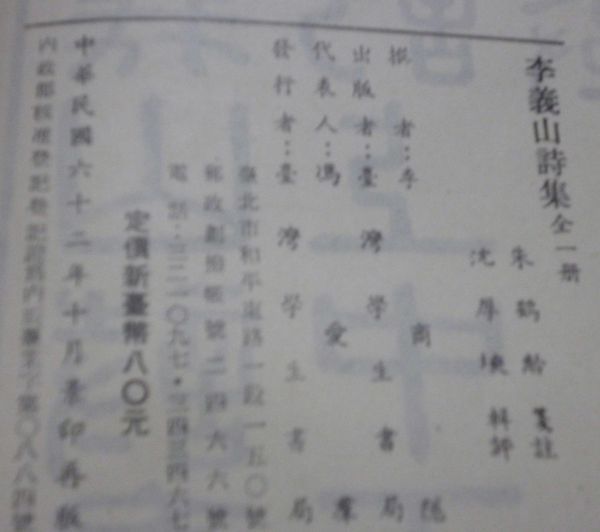 李義山詩集全一册
朱鶴齡箋註
沈厚塽輯評
撰者：李商隱
出版者：臺灣學生書局
代表人：馮愛羣
發行者：臺灣學生書局
臺北市和平東路一段一五〇號
郵政劃撥帳號二四六六號
電話：三二一〇九七・三四三四六七
定價新臺幣八〇元
中華民國六十二年十月景印再版
內政部核准登記證內版臺業字第〇八八四號